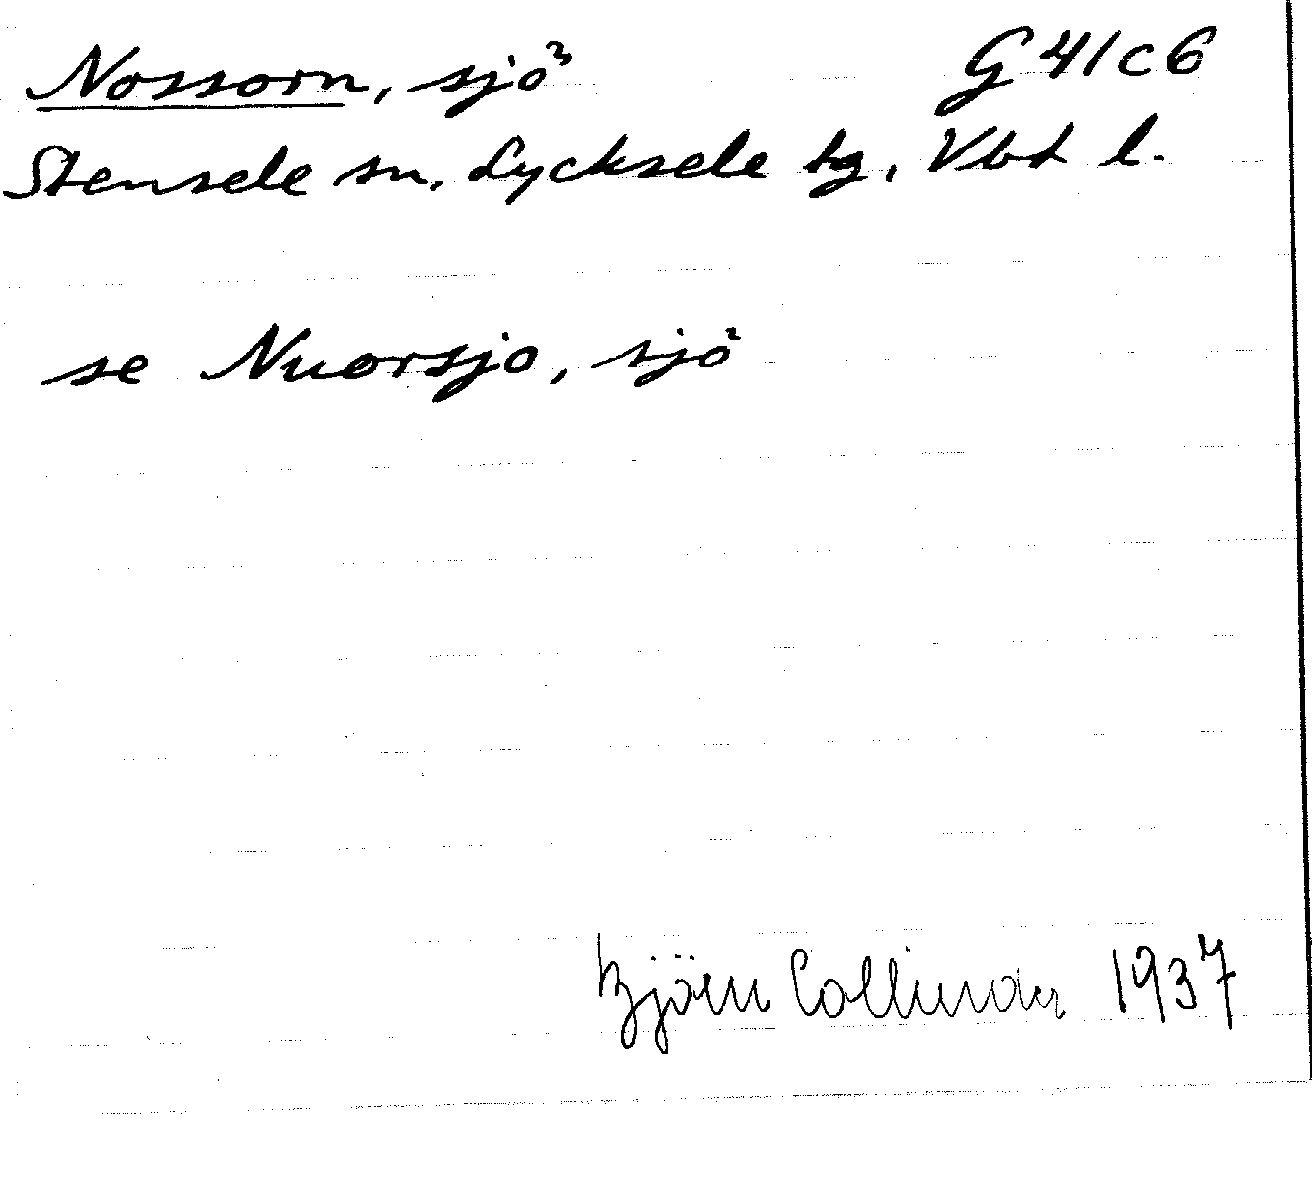 Nossorn, sjö G41c6
Stensele sn, Lycksele tg, Vbt l.
se Nuorsjo, sjö
Björn Collinder 1937